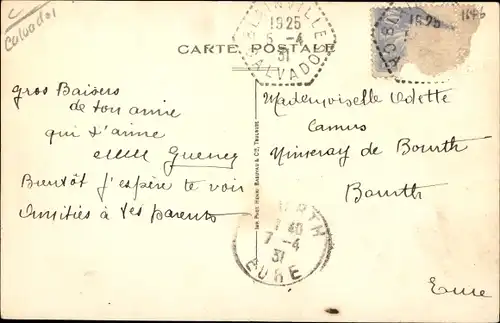 Calvados
CARTE POSTALE
BLAINVILLE
1925
5-4
31
CALVADOS
1925
1146
Gros Baisers
de ton amie
qui t'aime
Bientôt j'espère te voir
Amitiés à tes parents
Mademoiselle Odette
Camus
de Bourth
Bourth
Eure
BOURTH
40
7-4
31
EURE